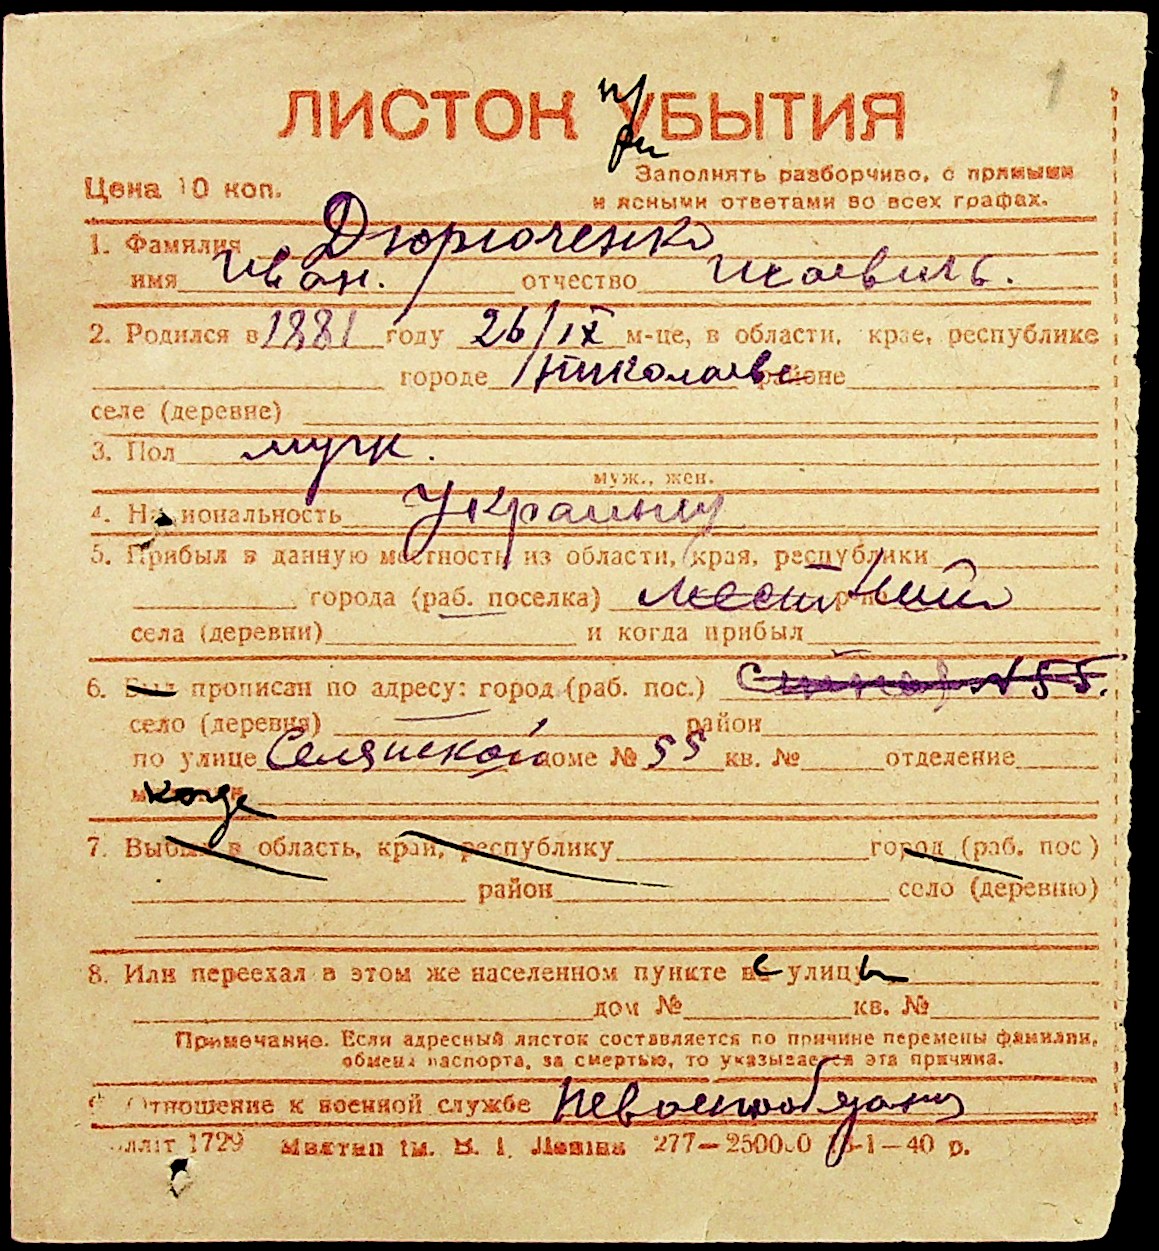 1
ЛИСТОК УБЫТИЯ
при
Цена 10 коп.
Заполнять разборчиво, с прямыми
и ясными ответами во всех графах.
1. Фамилия Дюрюченко
имя Иван. отчество
2. Родился в 1881 году 26/IX м-це, в области, крае, республике
городе Николаеве районе
селе (деревне)
3. Пол муж.
муж., жен.
4. Национальность Украинец
5. Прибыл в данную местность из области, края, республики
города (раб. поселка) местный р-на
села (деревни) и когда прибыл
6. Был прописан по адресу: город (раб. пос.) N 55.
село (деревня) район
по улице Селянской доме № 55 кв. № отделение
7. Выбыл в область, край, республику город (раб. пос)
район село (деревню)
8. Или переехал в этом же населенном пункте на улицу
дом № кв. №
Примечание. Если адресный листок составляется по причине перемены фамилии,
обмена паспорта, за смертью, то указывается эта причина.
9. Отношение к военной службе Невоеннообязан
1729 277—250000 13-1—40 р.